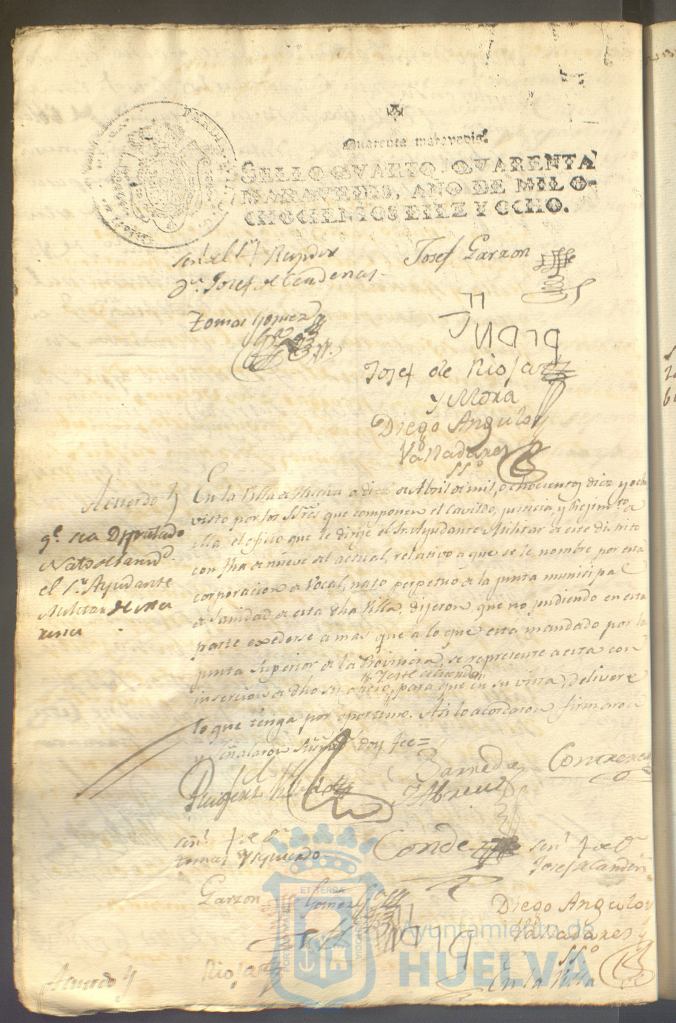 Quarenta maravedis.
SELLO QVARTO, QVARENTA
MARAVEDIS, AÑO DE MIL O-
CHOCIENTOS DIEZ Y OCHO.
Josef Garzon
Dn. Josef de Cardenas
Tomas Gomez
Josef de Rioja
y Mora
Diego Angulo y
Valladares
SSº
Acuerdo
qe. sea Diputado
Nato de Sanid
el Sr. Ayudante
Militar de Ma
rina
En la Villa de Huelva a diez de Abril de mil, ochocientos diez y ocho
visto por los SSres que componen el Cavildo, justicia, y Regimto. de
ella el oficio que le dirije el Sr. Ayudante Militar de este distrito
con fha de nueve del actual, relativo a que se le nombre por esta
corporacion de Vocal, nato perpetuo de la junta municipal
de Sanidad de esta dha Villa, dijeron, que no pudiendo en esta
parte excederse a mas que a lo que esta mandado por la
junta Superior de la Provincia, se represente a esta con
insercion de dho oficio
y testimonio
para que en su vista, delivere
lo que tenga por oportuno. Asi lo acordaron firmaron
y señalaron doy fee =
Barreda
Contreras
señl. + de Dn.
Tomas Yzquierdo
Conde
señl. + de Dn.
Josef de Carden
Garzon
Gomez
Diego Angulo y
Valladares
SSº
Rioja
Acuerdo
En la Villa
Ayuntamiento de
HUELVA